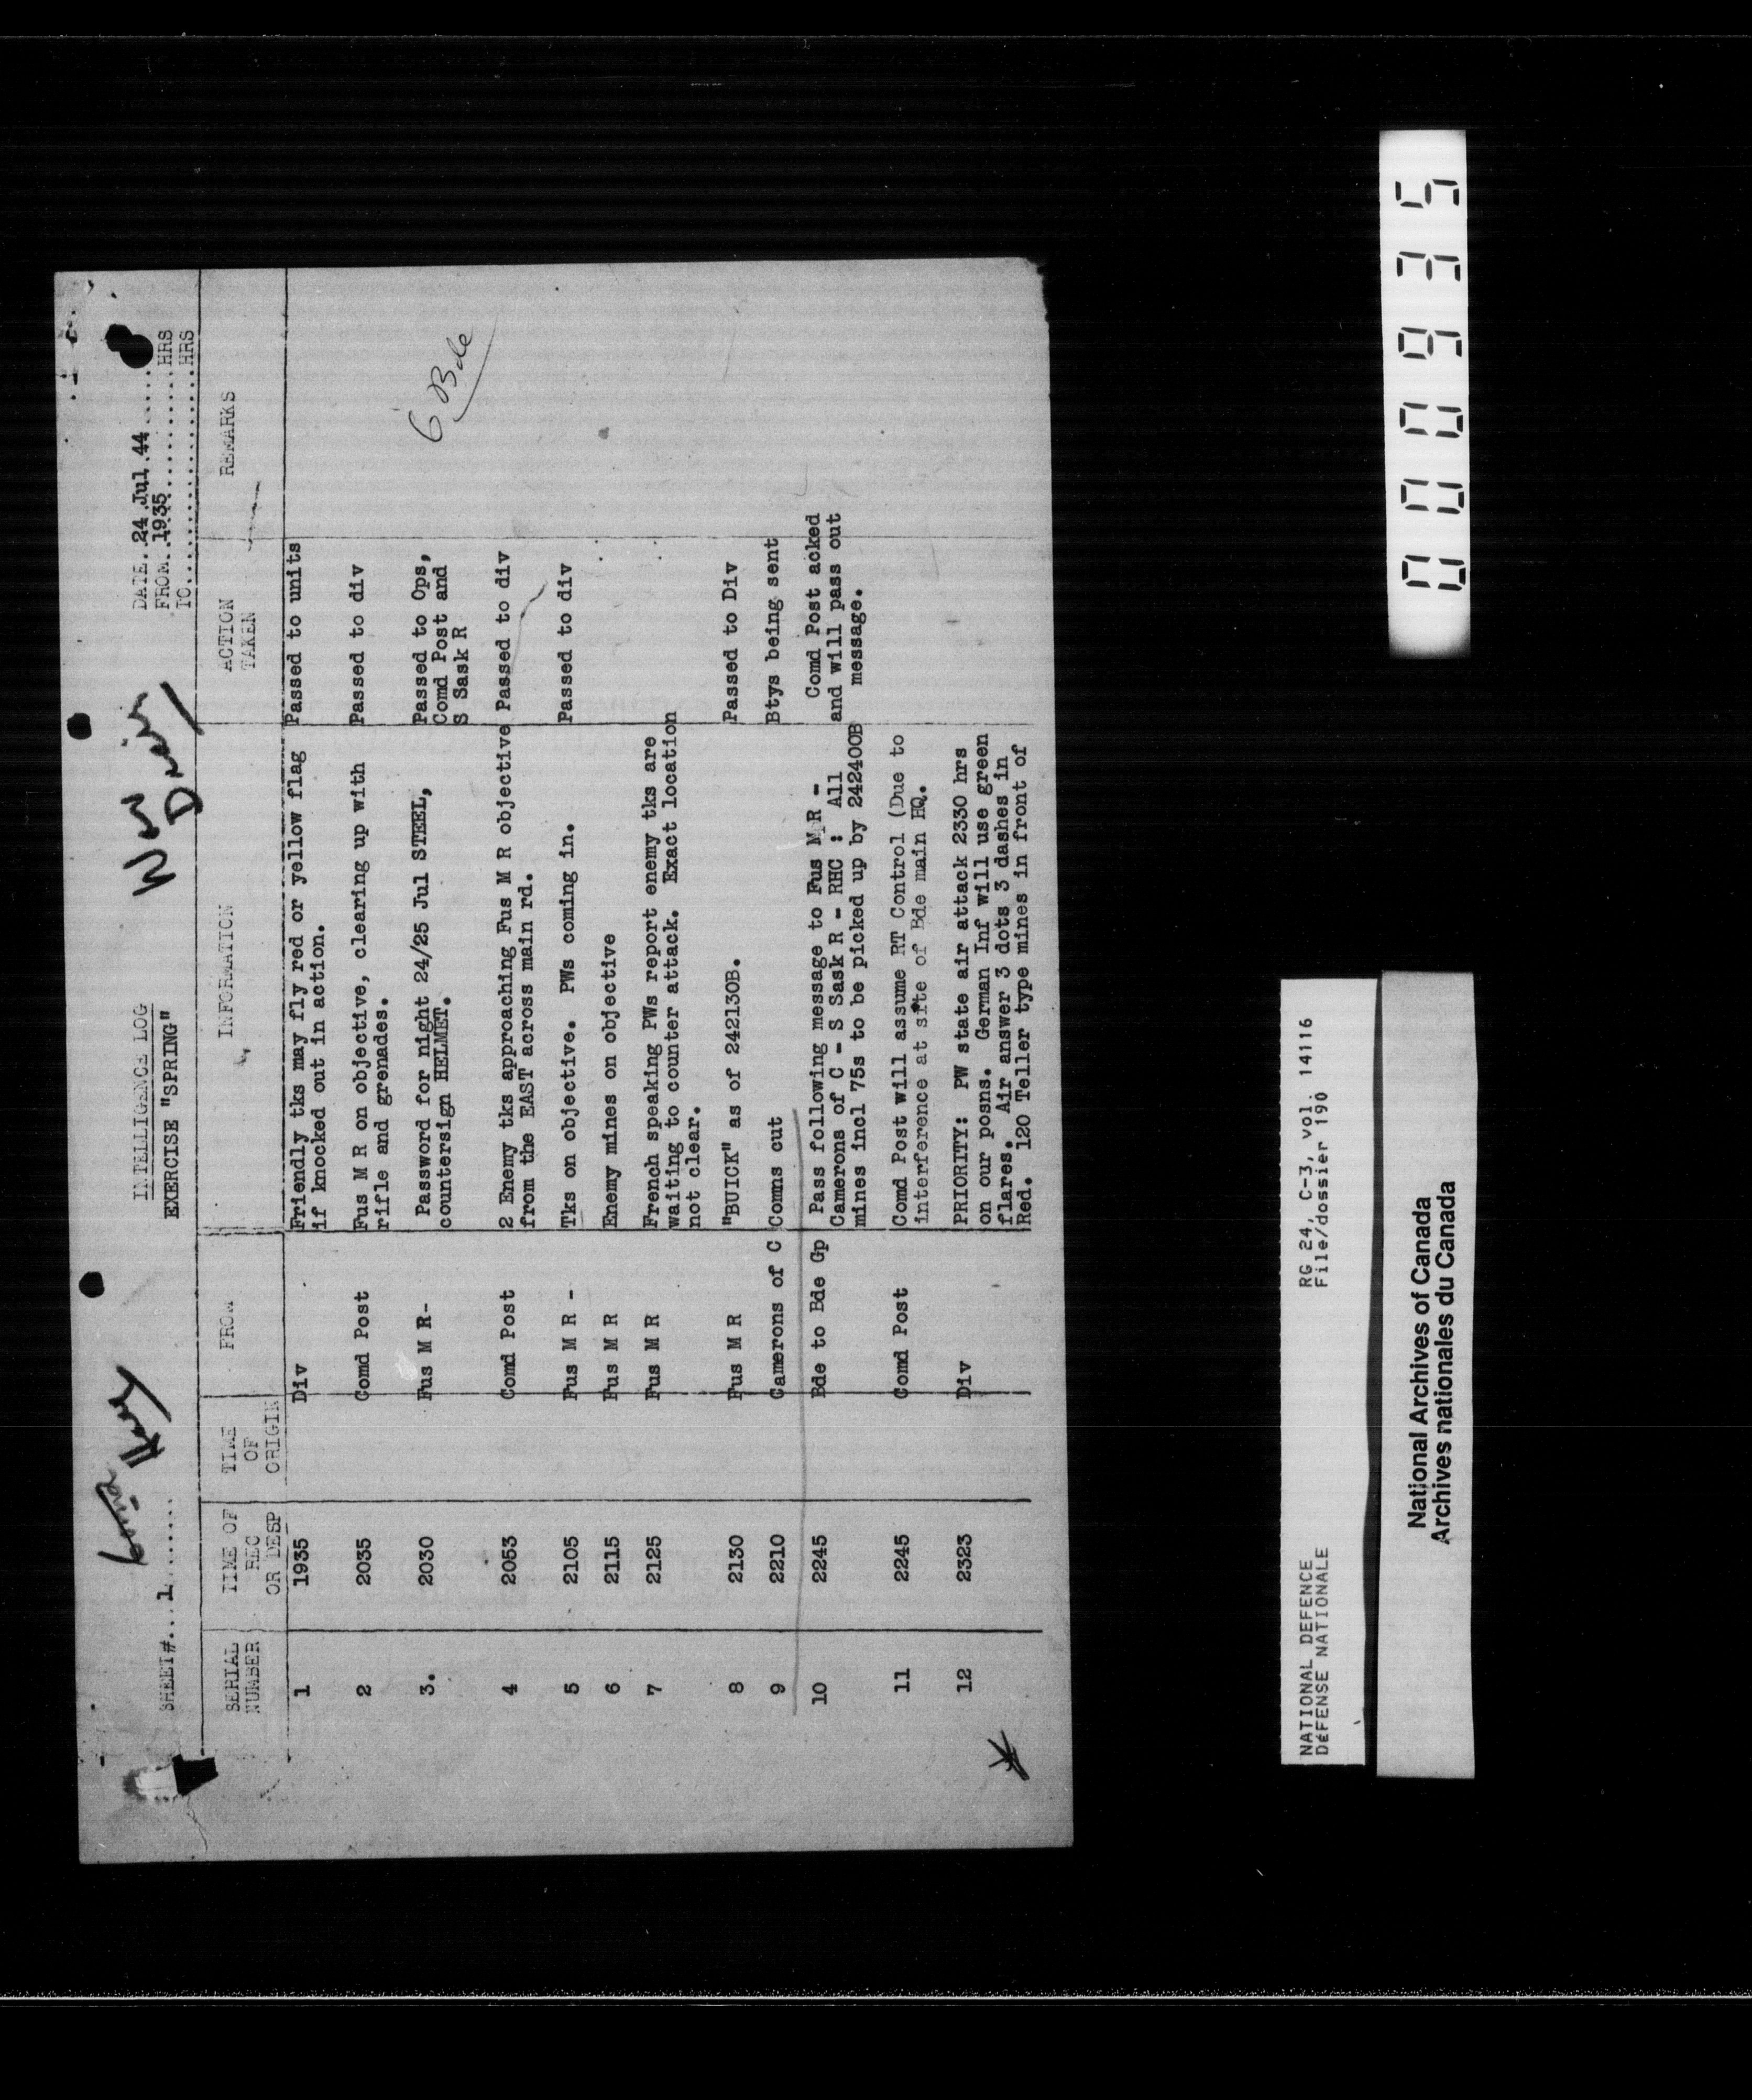 SHEET#...1.......
INTELLIGENCE LOG
EXERCISE "SPRING"
War
Diary
DATE.24 Jul 44.....
FROM..1935..........HRS
TO..................HRS
SERIAL NUMBER TIME OF REC OR DESP TIME OF ORIGIN FROM INFORMATION ACTION TAKEN REMARKS
1 1935 Div Friendly tks may fly red or yellow flag Passed to units
if knocked out in action.
2 2035 Comd Post Fus M R on objective, clearing up with Passed to div
rifle and grenades.
3. 2030 Fus M R- Password for night 24/25 Jul STEEL, Passed to Ops,
countersign HELMET. Comd Post and
S Sask R
6 Bde
4 2053 Comd Post 2 Enemy tks approaching Fus M R objective Passed to div
from the EAST across main rd.
5 2105 Fus M R - Tks on objective. PWs coming in. Passed to div
6 2115 Fus M R Enemy mines on objective
7 2125 Fus M R French speaking PWs report enemy tks are
waiting to counter attack. Exact location
not clear.
8 2130 Fus M R "BUICK" as of 242130B. Passed to Div
9 2210 Camerons of C Comns cut Btys being sent
10 2245 Bde to Bde Gp Pass following message to Fus M R - Comd Post acked
Camerons of C - S Sask R - RHC : All and will pass out
mines incl 75s to be picked up by 242400B message.
11 2245 Comd Post Comd Post will assume RT Control (Due to
interference at site of Bde main HQ.
12 2323 Div PRIORITY: PW state air attack 2330 hrs
on our posns. German Inf will use green
flares. Air answer 3 dots 3 dashes in
Red. 120 Teller type mines in front of
NATIONAL DEFENCE RG 24, C-3, vol. 14116
DÉFENSE NATIONALE File/dossier 190
National Archives of Canada
Archives nationales du Canada
000935